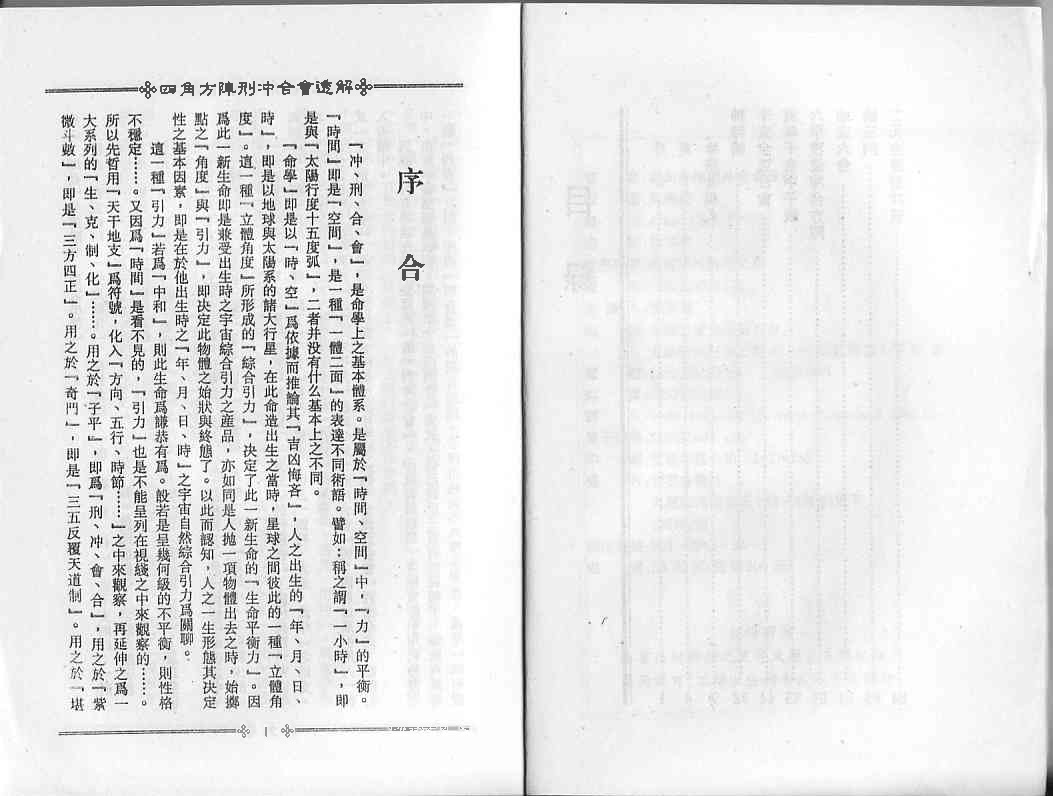 四角方陣刑冲合會透解
序合
「冲、刑、合、會」，是命學上之基本體系。是屬於「時間、空間」中，「力」的平衡。
「時間」即是「空間」，是一種「一體二面」的表達不同術語。譬如：稱之謂「一小時」，即
是與「太陽行度十五度弧」，二者并没有什么基本上之不同。
「命學」即是以「時、空」爲依據而推論其「吉凶悔吝」，人之出生的「年、月、日、
時」，即是以地球與太陽系的諸大行星，在此命造出生之當時，星球之間彼此的一種「立體角
度」。這一種「立體角度」所形成的「綜合引力」，决定了此一新生命的「生命平衡力」。因
爲此一新生命即是兼受出生時之宇宙綜合引力之産品，亦如同是人抛一項物體出去之時，始擲
點之「角度」與「引力」，即决定此物體之始狀與終態了。以此而認知，人之一生形態其决定
性之基本因素，即是在於他出生時之「年、月、日、時」之宇宙自然綜合引力爲關聊。
這一種「引力」若爲「中和」，則此生命爲謙恭有爲。設若是呈幾何級的不平衡，則性格
不穩定……。又因爲「時間」是看不見的，「引力」也是不能呈列在視綫之中來觀察的……。
所以先哲用「天干地支」爲符號，化入「方向、五行、時節……」之中來觀察，再延伸之爲一
大系列的「生、克、制、化」……。用之於「子平」，即爲「刑、冲、會、合」，用之於「紫
微斗數」，即是「三方四正」。用之於「奇門」，即是「三五反覆天道制」。用之於「堪
1